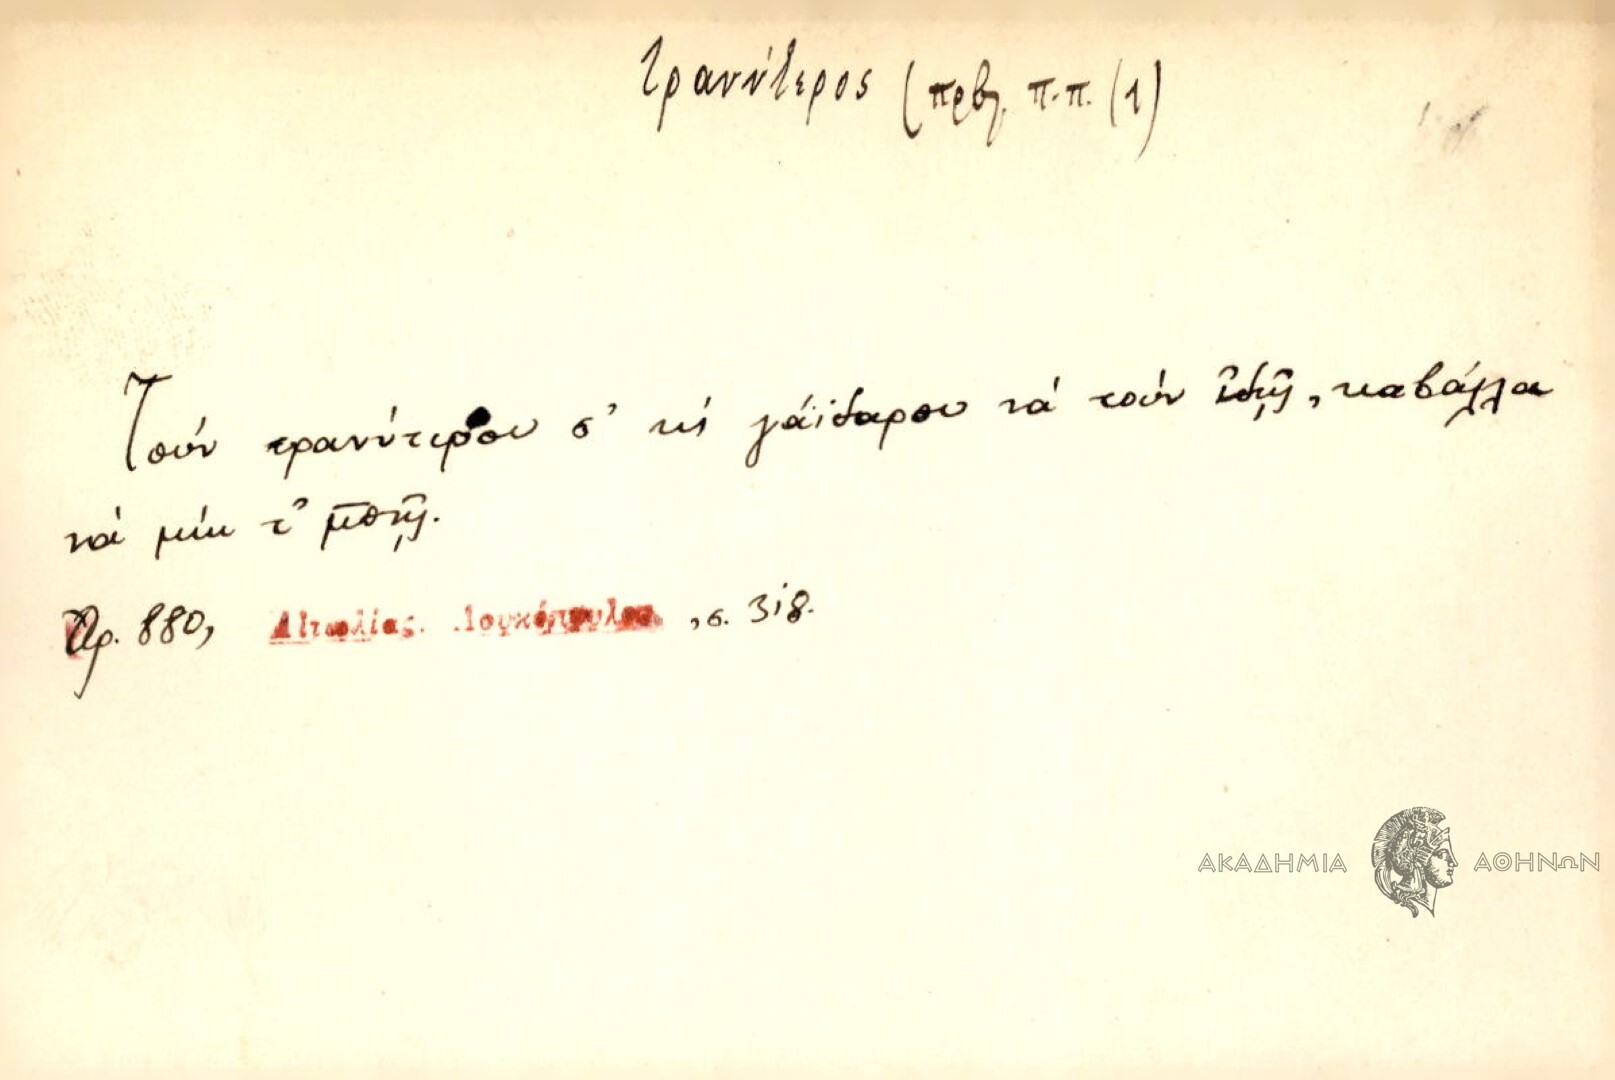 τρανύτερος (πρβλ. π.π. (1)
Τούν τρανύτερου σ' κι γάϊδαρου νά τούν ἰδῇς, καβάλλα
νά μὴν τ' μπῇς.
Ἀρ. 880, Αἰτωλίας. Λουκόπουλος, σ. 318.
ΑΚΑΔΗΜΙΑ ΑΘΗΝΩΝ